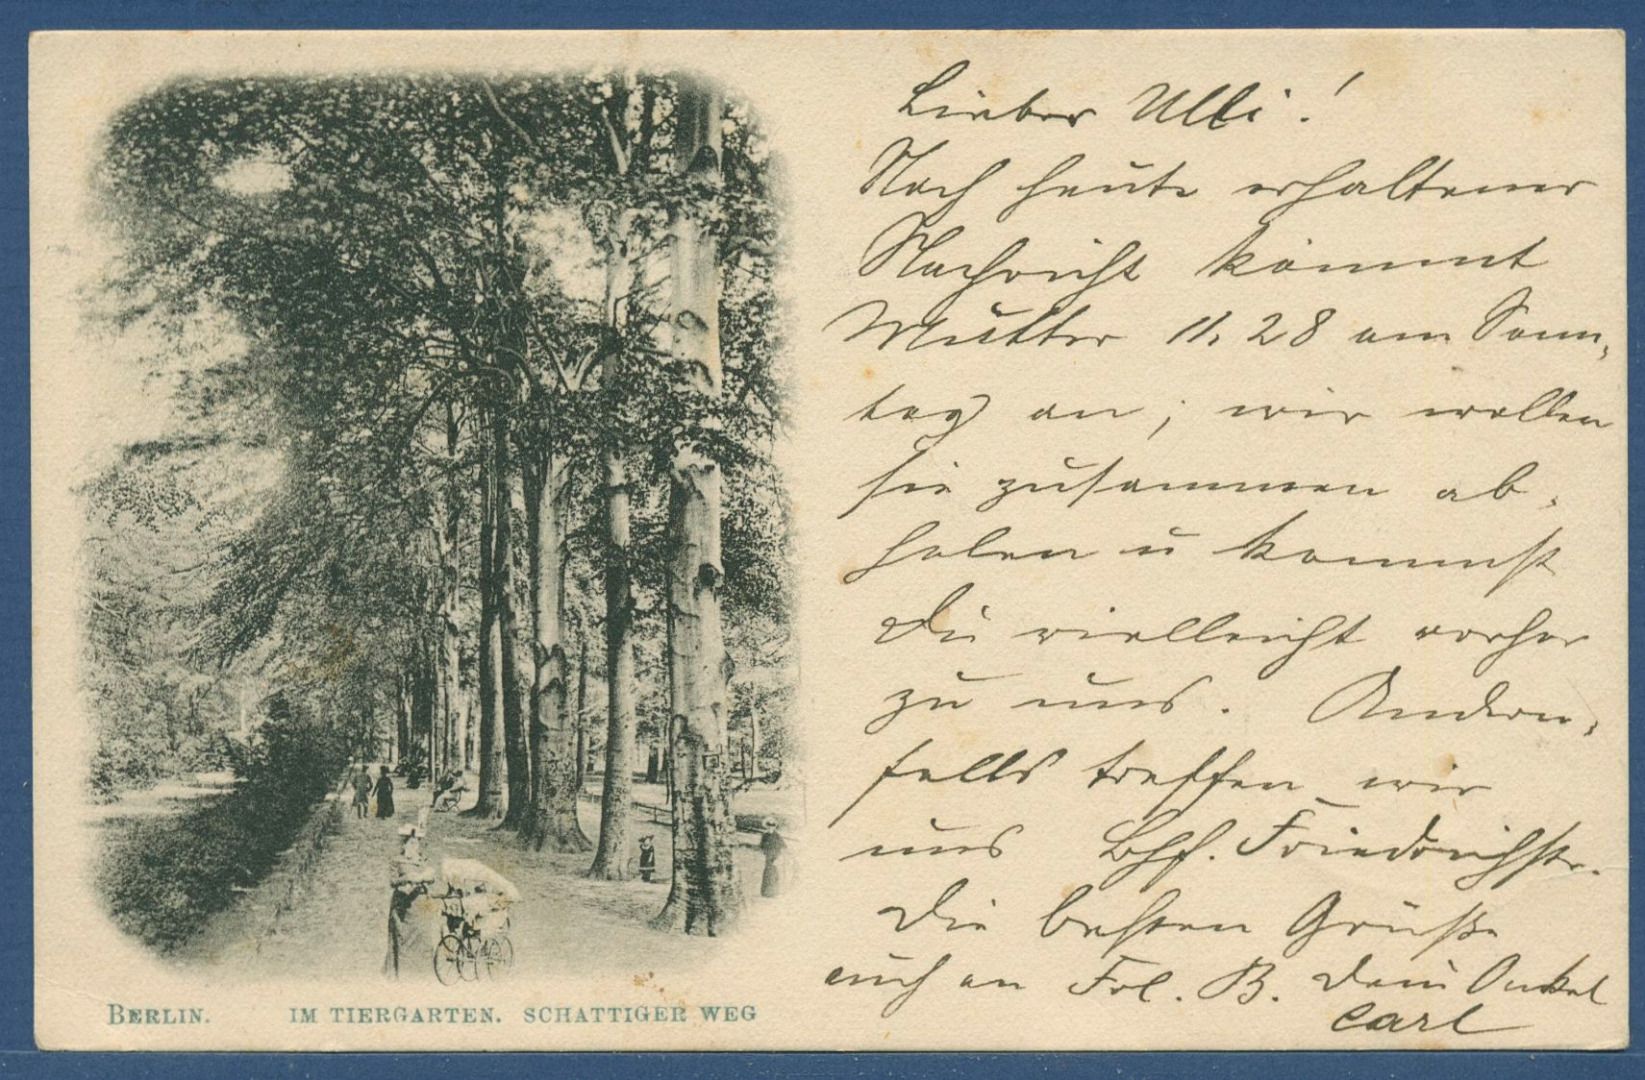 Lieber Ulli!
Nach heute erhaltener
Nachricht kommt
Mutter 11,28 am Sonn-
tag an; wir wollen
sie zusammen ab-
holen u kommst
Du vielleicht vorher
zu uns. Andern-
falls treffen wir
uns Bhf. Friedrichstr.
Die besten Grüße
auch an Frl. B. Dein Onkel
Carl
BERLIN. IM TIERGARTEN. SCHATTIGER WEG